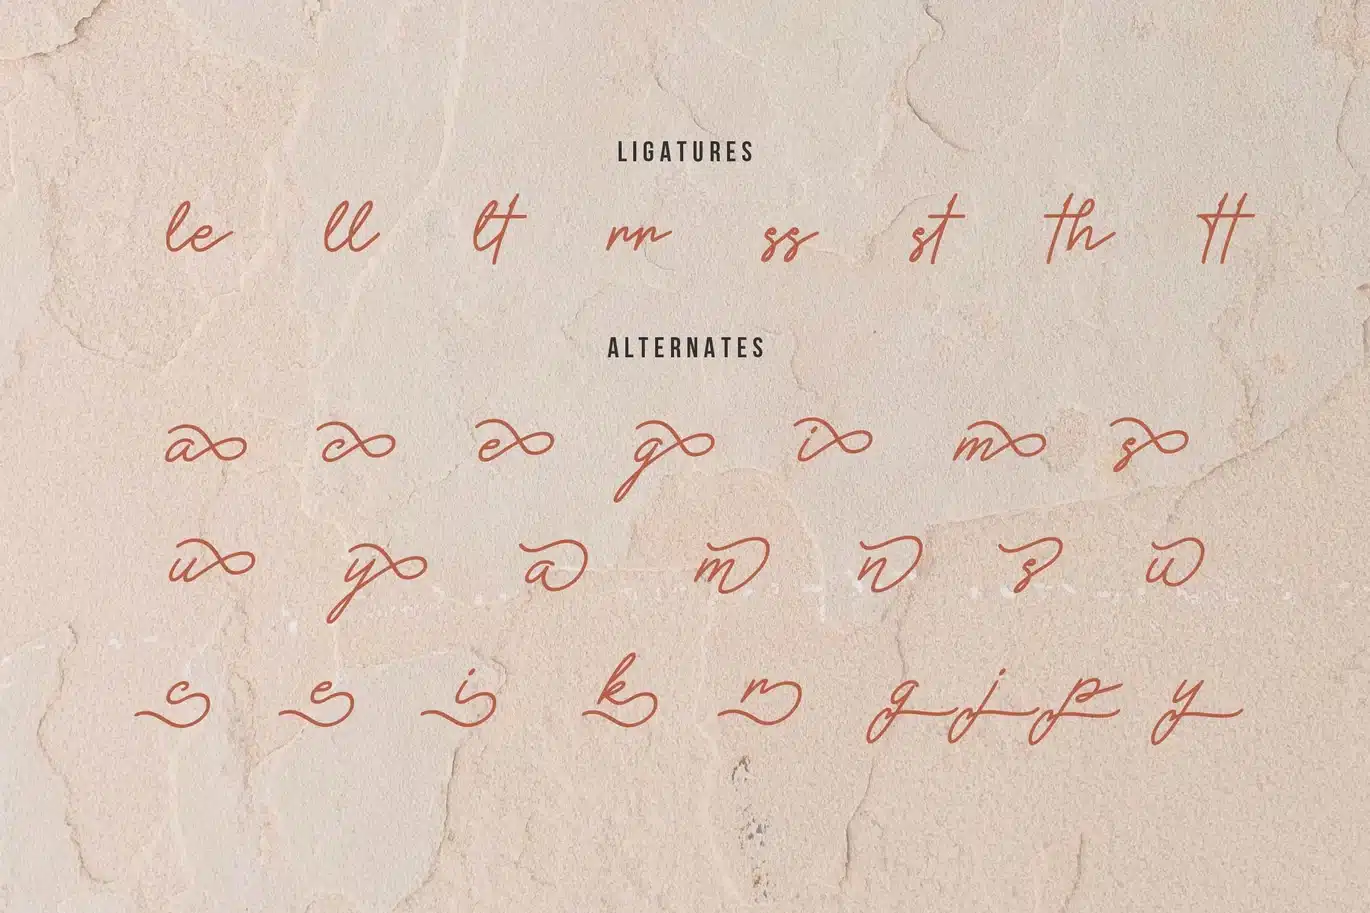 LIGATURES
le ll lt rr ss st th tt
ALTERNATES
a c e g i m s
u y a m n s u
c e i k r g j p y